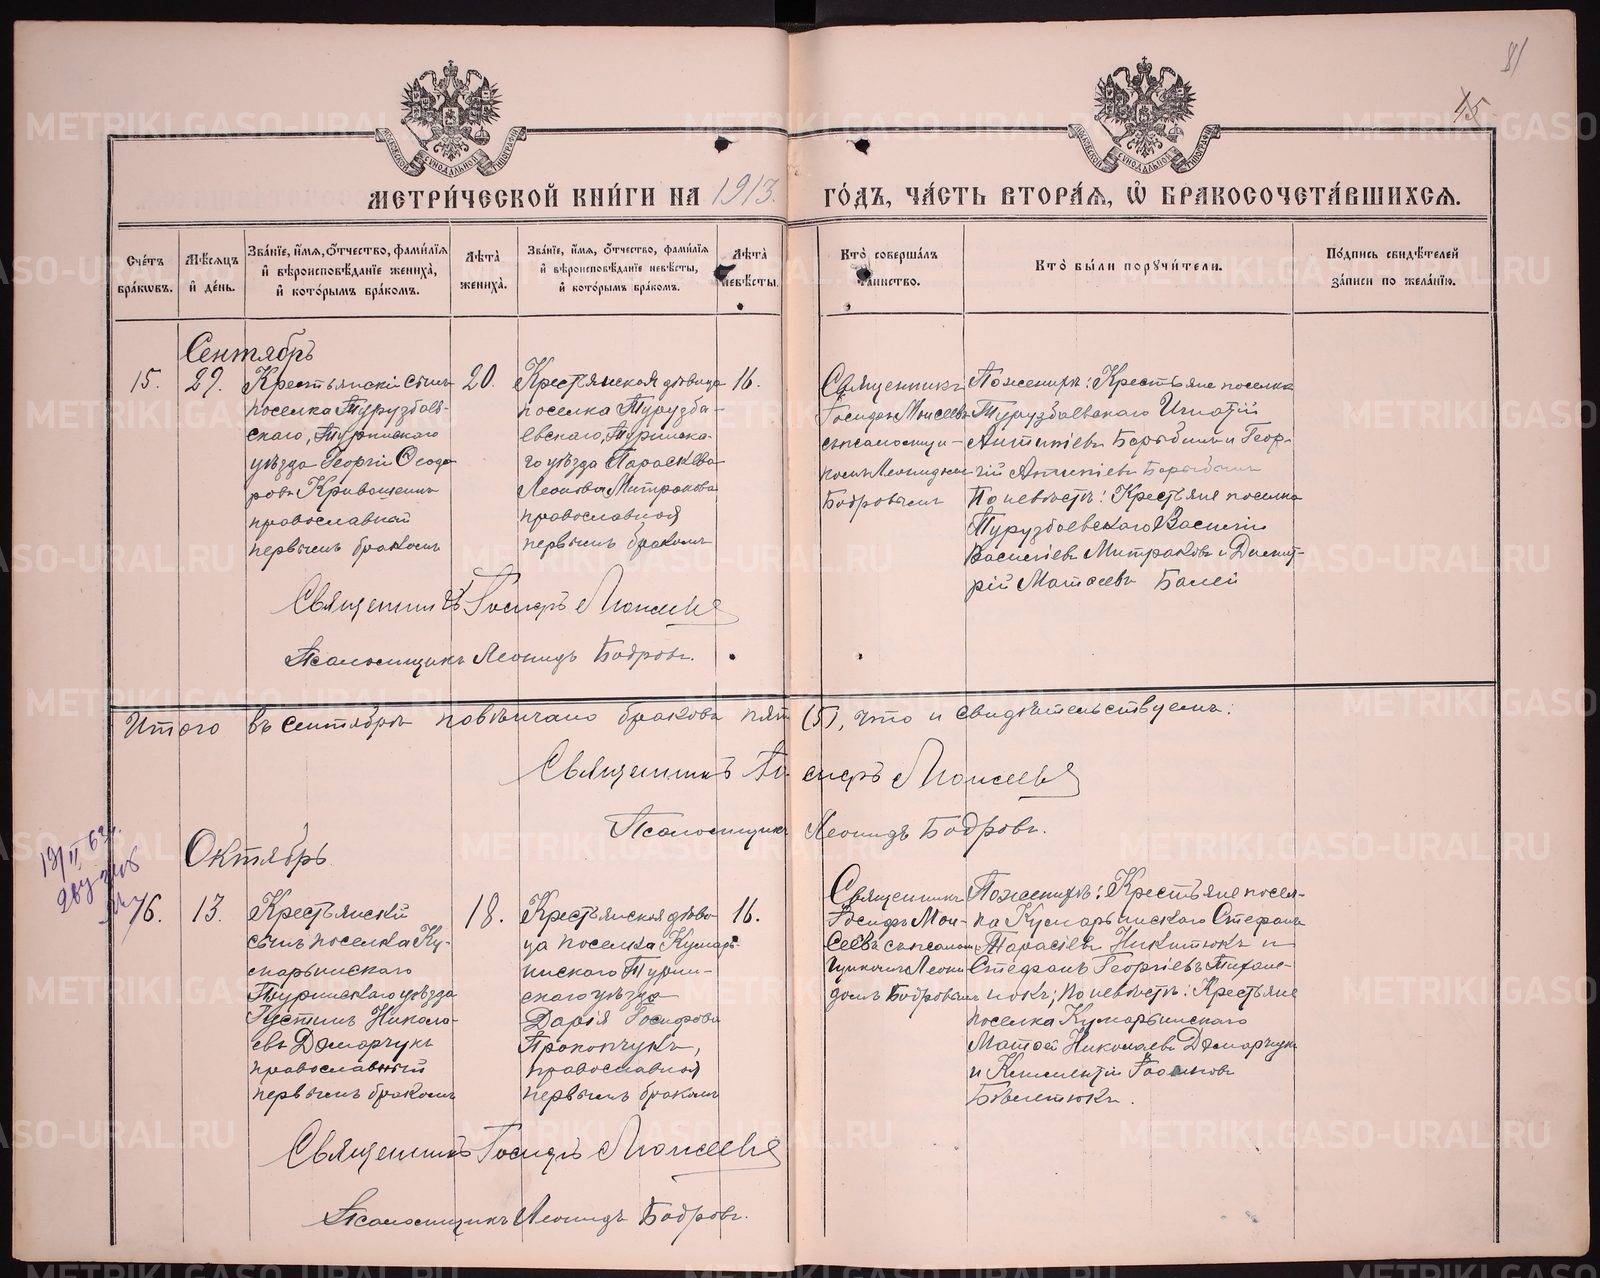 81
45
МЕТРИ́ЧЕСКОЙ КНИ́ГИ НА 1913. ГО́ДЪ, ЧА́СТЬ ВТОРА́Я, Ѡ҆ БРАКОСОЧЕТА́ВШИХСЯ.
Сче́тъ бра́кѡвъ.
Мѣ́сяцъ и҆ де́нь.
Зва́нїе, и҆́мя, ѻ҆́тчество, фами́лїя и҆ вѣроисповѣ́данїе жениха̀, и҆ кото́рымъ бра́комъ.
Лѣта̀ жениха̀.
Зва́нїе, и҆́мя, ѻ҆́тчество, фами́лїя и҆ вѣроисповѣ́данїе невѣ́сты, и҆ кото́рымъ бра́комъ.
Лѣта̀ невѣ́сты.
Кто̀ соверша́лъ та́инство.
Кто̀ бы́ли порꙋчи́тели.
По́дпись свидѣ́телей за́писи по жела́нїю.
Сентябрь
15.
29.
Крестьянскій сынъ
поселка Турузбаев-
скаго, Туринскаго
уѣзда Георгій Ѳеодо
ровъ Кривошеинъ
православный
первымъ бракомъ
20.
Крестьянская дѣвица
поселка Турузба-
евскаго, Туринска-
го уѣзда Параскева
Леонова Митракова
православной
первымъ бракомъ
16.
Священникъ
Іосифъ Моисеевъ
съ псаломщи-
комъ Леонидом
Бобровымъ
По женихѣ: Крестьяне поселка
Турузбаевскаго Игнатій
Антипіевъ Барыбинъ и Геор-
гій Антипіевъ Барыбинъ
По невѣстѣ: Крестьяне поселка
Турузбаевскаго Василій
Василіевъ Митраковъ и Димит-
рій Матѳеевъ
Священникъ Іосифъ Моисеевъ
Псаломщикъ Леонидъ Бобровъ.
Итого въ сентябрѣ повѣнчано браковъ пять (5), что и свидѣтельствуемъ:
Священникъ Іосифъ Моисеевъ
Псаломщикъ Леонидъ Бобровъ.
Октябрь
16.
13.
Крестьянскій
сынъ поселка Ку-
марьинскаго
Туринскаго уѣзда
Іустинъ Никола-
евъ Демарчукъ
православный
первымъ бракомъ
18.
Крестьянская дѣви-
ца поселка Кумарь-
инскаго Турин-
скаго уѣзда
Дарія Іосифова
Прокопчукъ,
православной
первымъ бракомъ
16.
Священникъ
Іосифъ Мои-
сеевъ съ псалом-
щикомъ Леони
домъ Бобровымъ
По женихѣ: Крестьяне посел-
ка Кумарьинскаго Стефанъ
Тарасіевъ Никитюкъ и
Стефанъ Георгіевъ
по невѣстѣ: Крестьяне
поселка Кумарьинскаго
Матѳей Николаевъ Демарчукъ
и Климентій
Священникъ Іосифъ Моисеевъ
Псаломщикъ Леонидъ Бобровъ.
METRIKI.GASO-URAL.RU